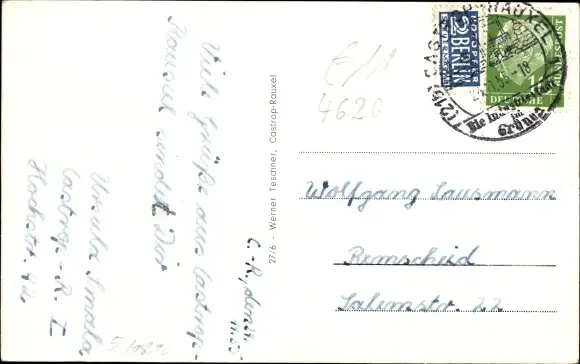 Viele Grüße aus Castrop-
Rauxel sendet Dir
Ursula
Castrop - R. I
Hochstr. 42
C.-R., den
27/6 - Werner Teschner, Castrop-Rauxel
E/M
4620
NOTOPFER
2 BERLIN
STEUERMARKE
DEUTSCHE
BUNDESPOST
(21b) CASTROP-RAUXEL
Die Industriestadt
im
Grünen
Wolfgang Sausmann
Remscheid
Salemstr. 22